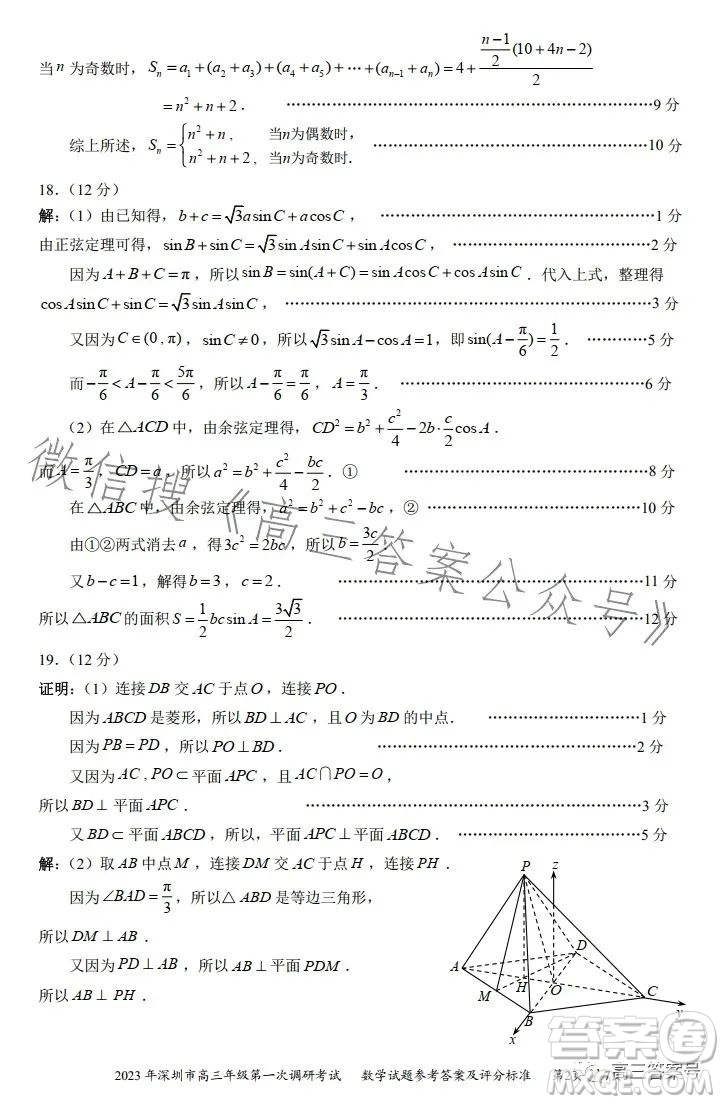 当n为奇数时，S_n=a_1+(a_2+a_3)+(a_4+a_5)+···+(a_{n-1}+a_n)=4+\frac{\frac{n-1}{2}(10+4n-2)}{2}
=n^2+n+2．……………………9分
综上所述，S_n=\begin{cases}n^2+n, & 当n为偶数时,\\ n^2+n+2, & 当n为奇数时.\end{cases} ……………………10分
18．（12分）
解：（1）由已知得，b+c=\sqrt{3}a\sin C+a\cos C，……………………1分
由正弦定理可得，\sin B+\sin C=\sqrt{3}\sin A\sin C+\sin A\cos C，……………………2分
因为A+B+C=π，所以\sin B=\sin(A+C)=\sin A\cos C+\cos A\sin C．代入上式，整理得
\cos A\sin C+\sin C=\sqrt{3}\sin A\sin C，……………………3分
又因为C∈(0,π)，\sin C≠0，所以\sqrt{3}\sin A-\cos A=1，即\sin(A-\frac{π}{6})=\frac{1}{2}．…………5分
而-\frac{π}{6}<A-\frac{π}{6}<\frac{5π}{6}，所以A-\frac{π}{6}=\frac{π}{6}，A=\frac{π}{3}．……………………6分
（2）在△ACD中，由余弦定理得，CD^2=b^2+\frac{c^2}{4}-2b·\frac{c}{2}\cos A．
而A=\frac{π}{3}，CD=a，所以a^2=b^2+\frac{c^2}{4}-\frac{bc}{2}．① ……………………8分
在△ABC中，由余弦定理得，a^2=b^2+c^2-bc，② ……………………10分
由①②两式消去a，得3c^2=2bc，所以b=\frac{3c}{2}．
又b-c=1，解得b=3，c=2．……………………11分
所以△ABC的面积S=\frac{1}{2}bc\sin A=\frac{3\sqrt{3}}{2}．……………………12分
19．（12分）
证明：（1）连接DB交AC于点O，连接PO．
因为ABCD是菱形，所以BD⊥AC，且O为BD的中点．……………………1分
因为PB=PD，所以PO⊥BD．……………………2分
又因为AC,PO⊂平面APC，且AC∩PO=O，
所以BD⊥平面APC．……………………3分
又BD⊂平面ABCD，所以，平面APC⊥平面ABCD．……………………5分
解：（2）取AB中点M，连接DM交AC于点H，连接PH．
因为∠BAD=\frac{π}{3}，所以△ABD是等边三角形，
所以DM⊥AB．
又因为PD⊥AB，所以AB⊥平面PDM．
所以AB⊥PH．
P
z
D
A
H
O
C
M
B
y
x
微信搜《高三答案公众号》
答案圈
高三答案号
2023年深圳市高三年级第一次调研考试 数学试题参考答案及评分标准